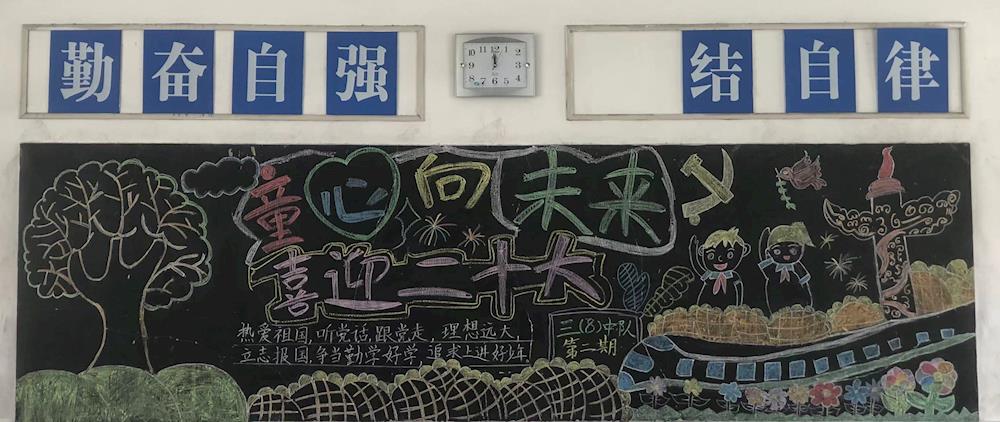 勤奋自强
结自律
10 11 12 1 2 3 4 5 6 7 8 9
童心向未来
喜迎二十大
热爱祖国,听党话,跟党走,理想远大,
立志报国,争当勤学好学 追求上进好少年
二(8)中队
第二期